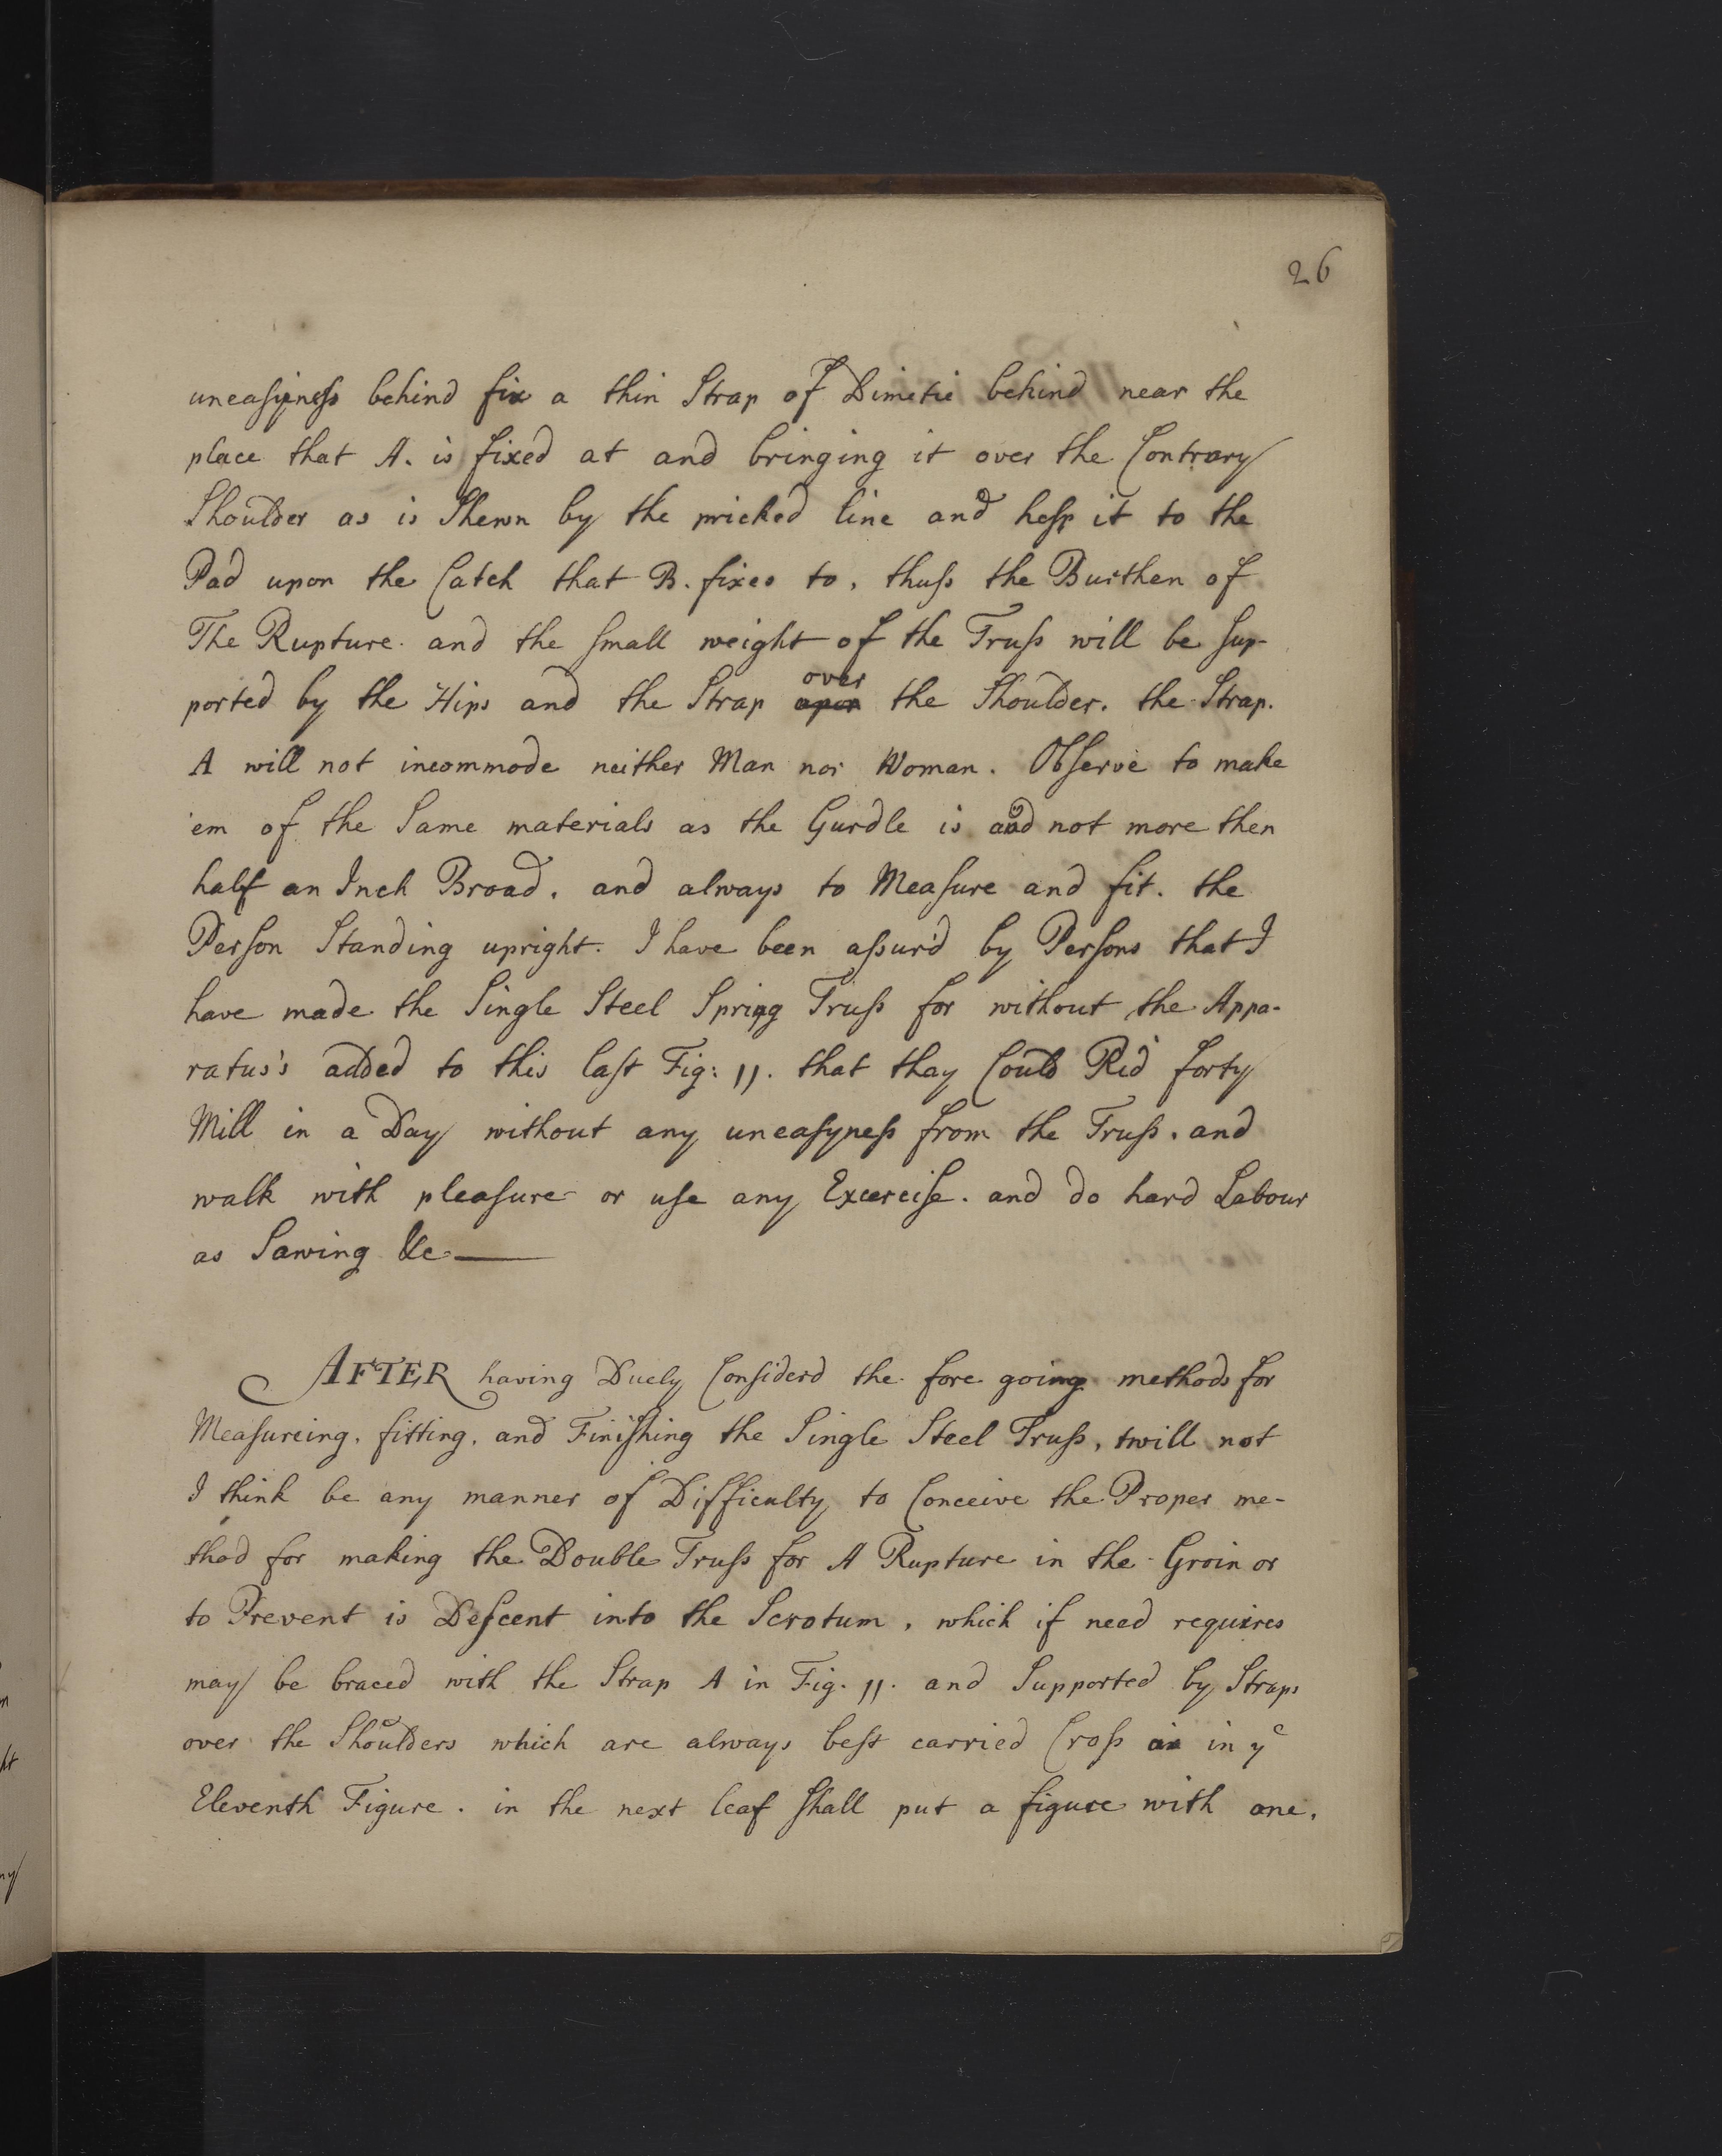 26
uneasyness behind fix a thin Strap of Dimetie behind near the
place that A. is fixed at and bringing it over the Contrary
Shoulder as is Shewn by the pricked line and hesp it to the
Pad upon the Catch that B. fixes to, thuss the Burthen of
The Rupture. and the small weight of the Truss will be sup-
ported by the Hips and the Strap upon over the Shoulder. the Strap.
A will not incommode neither Man nor Woman. Observe to make
'em of the Same materials as the Gurdle is and not more then
half an Inch Broad. and always to Measure and fit. the
Person Standing upright. I have been assur'd by Persons that I
have made the Single Steel Spring Truss for without the Appa-
ratus's added to this last Fig: 11. that thay Could Rid forty
Mill in a Day without any uneasyness from the Truss. and
walk with pleasure or use any Excercise. and do hard Labour
as Sawing &c—
AFTER having Duely Considerd the fore going methods for
Measureing. fitting. and Finishing the Single Steel Truss, twill not
I think be any manner of Difficulty to Conceive the Proper me-
thod for making the Double Truss for A Rupture in the Groin or
to Prevent is Descent into the Scrotum, which if need requires
may be braced with the Strap A in Fig. 11. and Supported by Straps
over the Shoulders which are always best carried Cross in yᵉ
Eleventh Figure. in the next leaf shall put a figure with one.